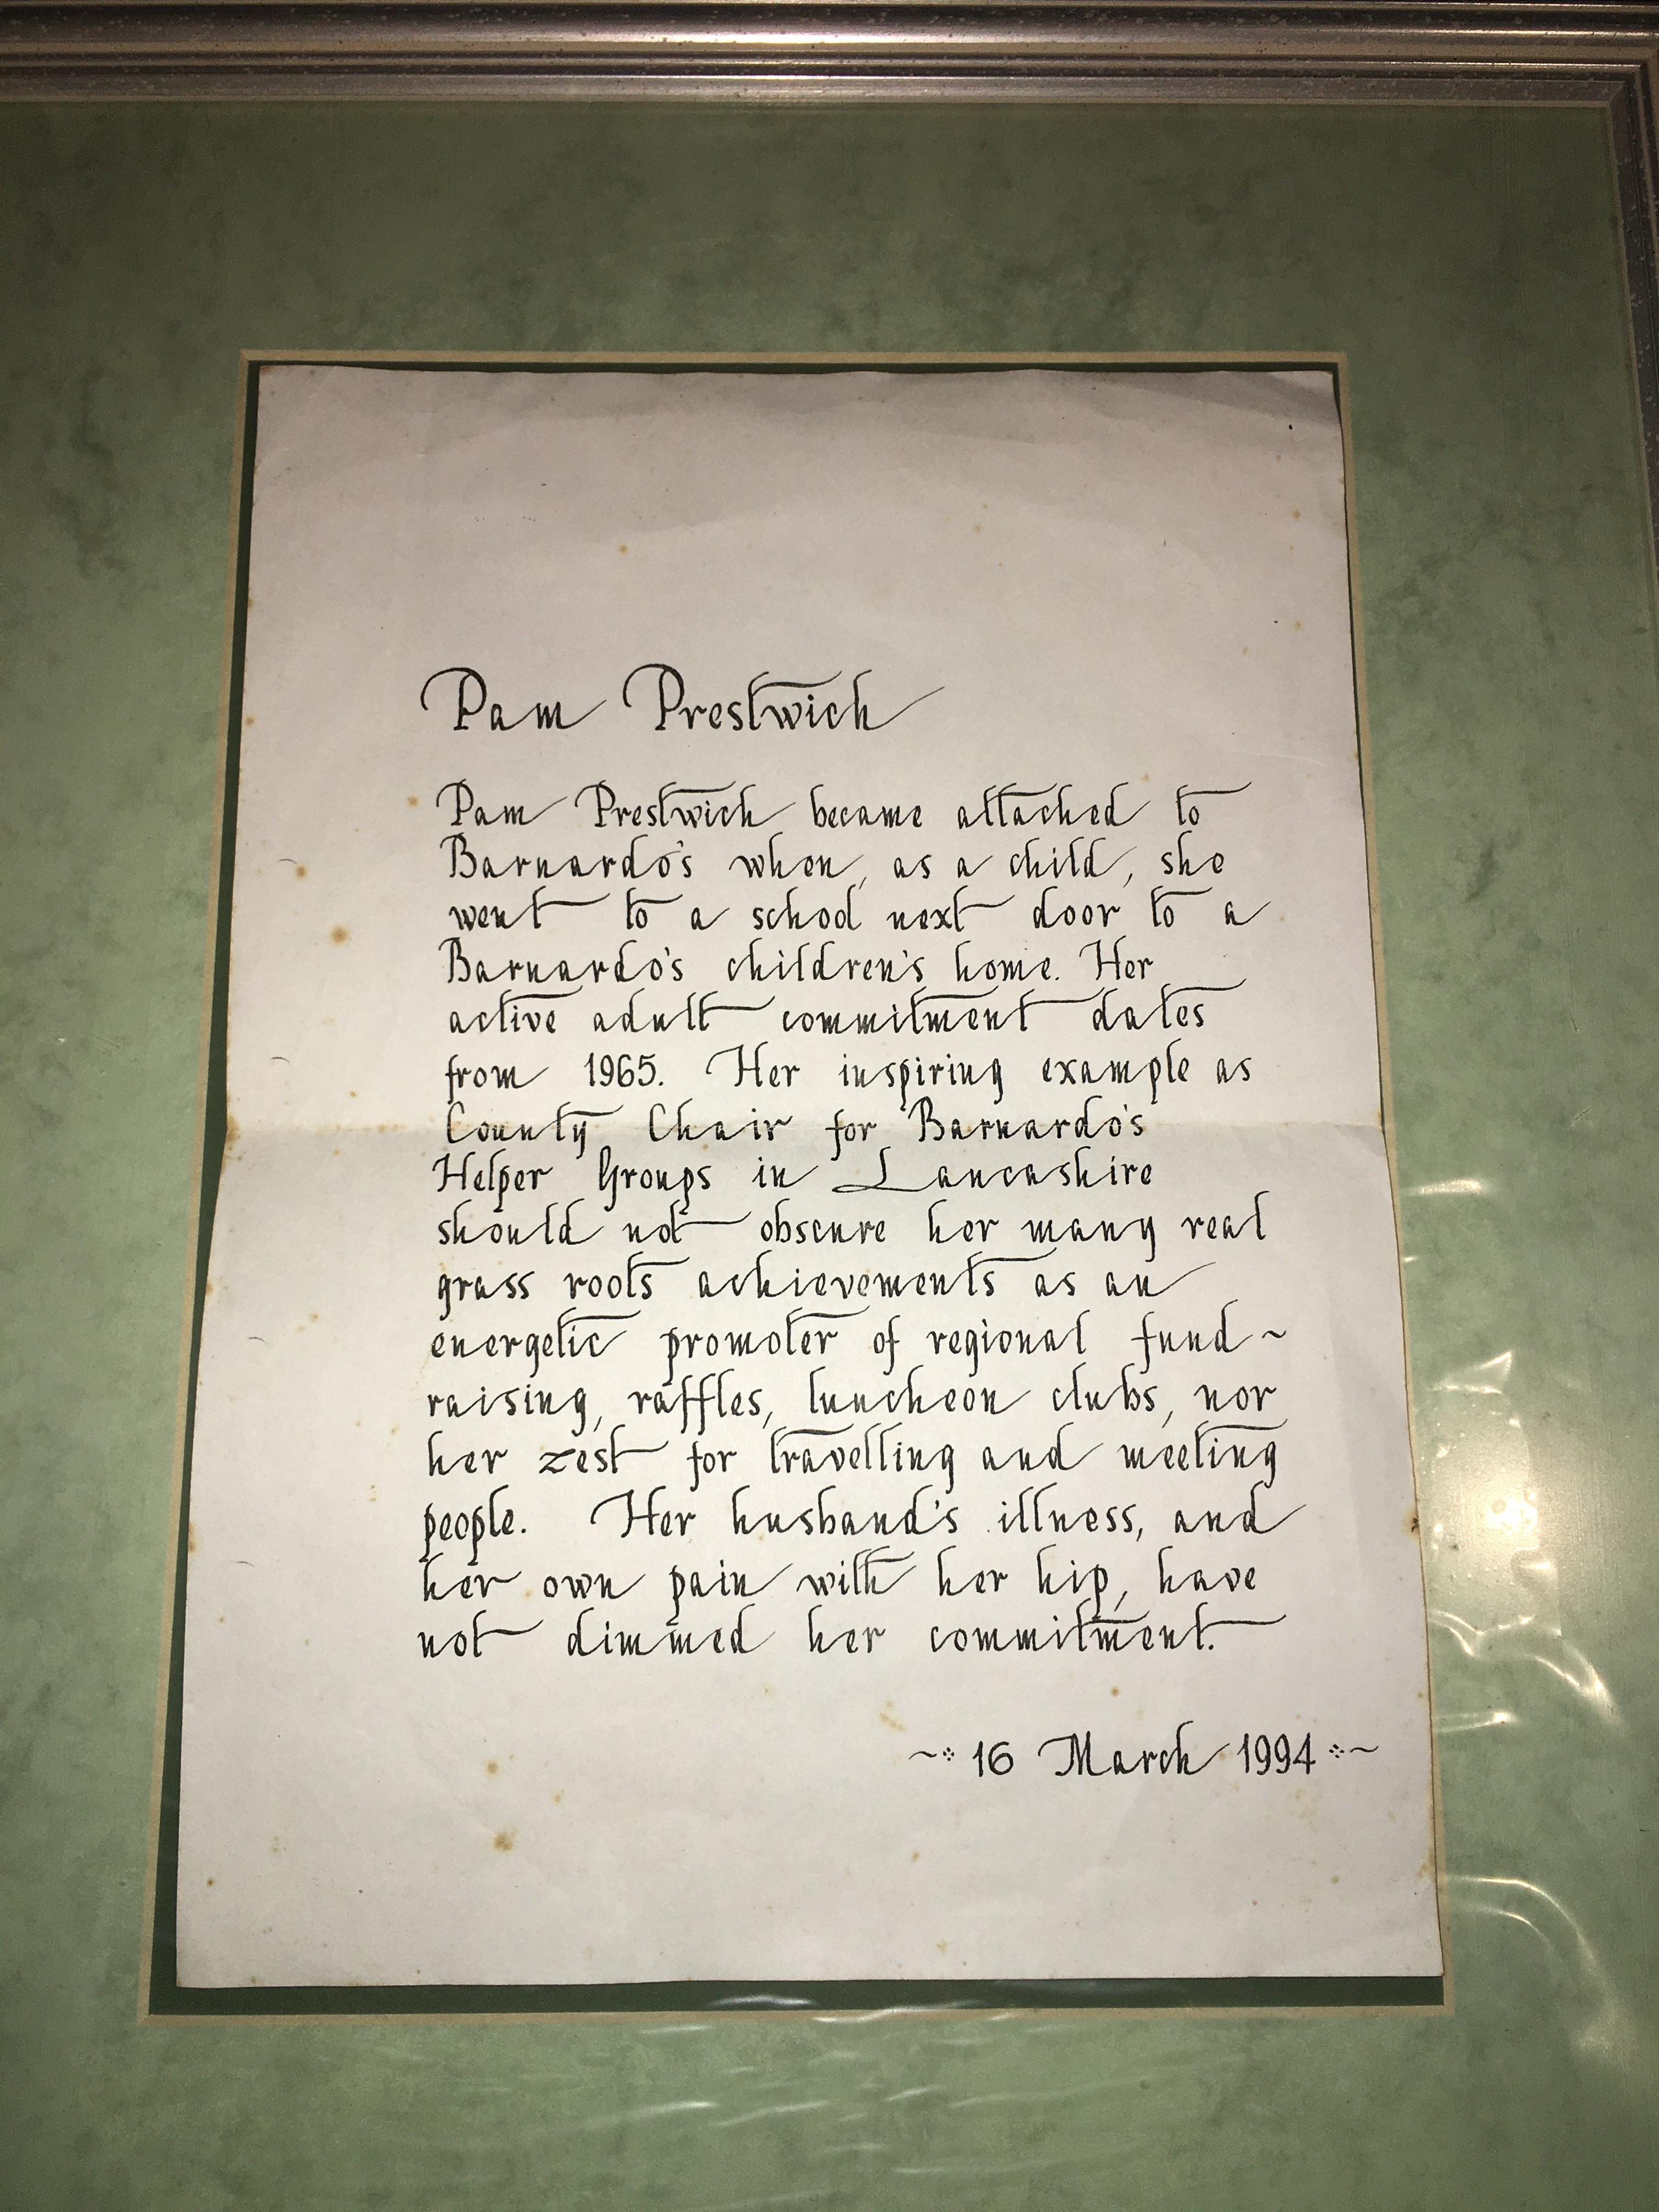 Pam Prestwich
Pam Prestwich became attached to
Barnardo's when, as a child, she
went to a school next door to a
Barnardo's children's home. Her
active adult commitment dates
from 1965. Her inspiring example as
County Chair for Barnardo's
Helper Groups in Lancashire
should not obscure her many real
grass roots achievements as an
energetic promoter of regional fund~
raising, raffles, luncheon clubs, nor
her zest for travelling and meeting
people. Her husband's illness, and
her own pain with her hip, have
not dimmed her commitment.
~ 16 March 1994 ~